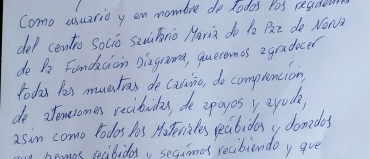 Como usuario y en nombre de todos los residentes
del centro Socio Sanitario María de la Paz de Norva
de la Fundación Diagrama, queremos agradecer
todas las muestras de cariño, de comprención,
de atenciones recibidas, de apoyos y ayuda,
asin como todos los Materiales recibidos y donados
que hemos recibidos y seguimos recibiendo y que